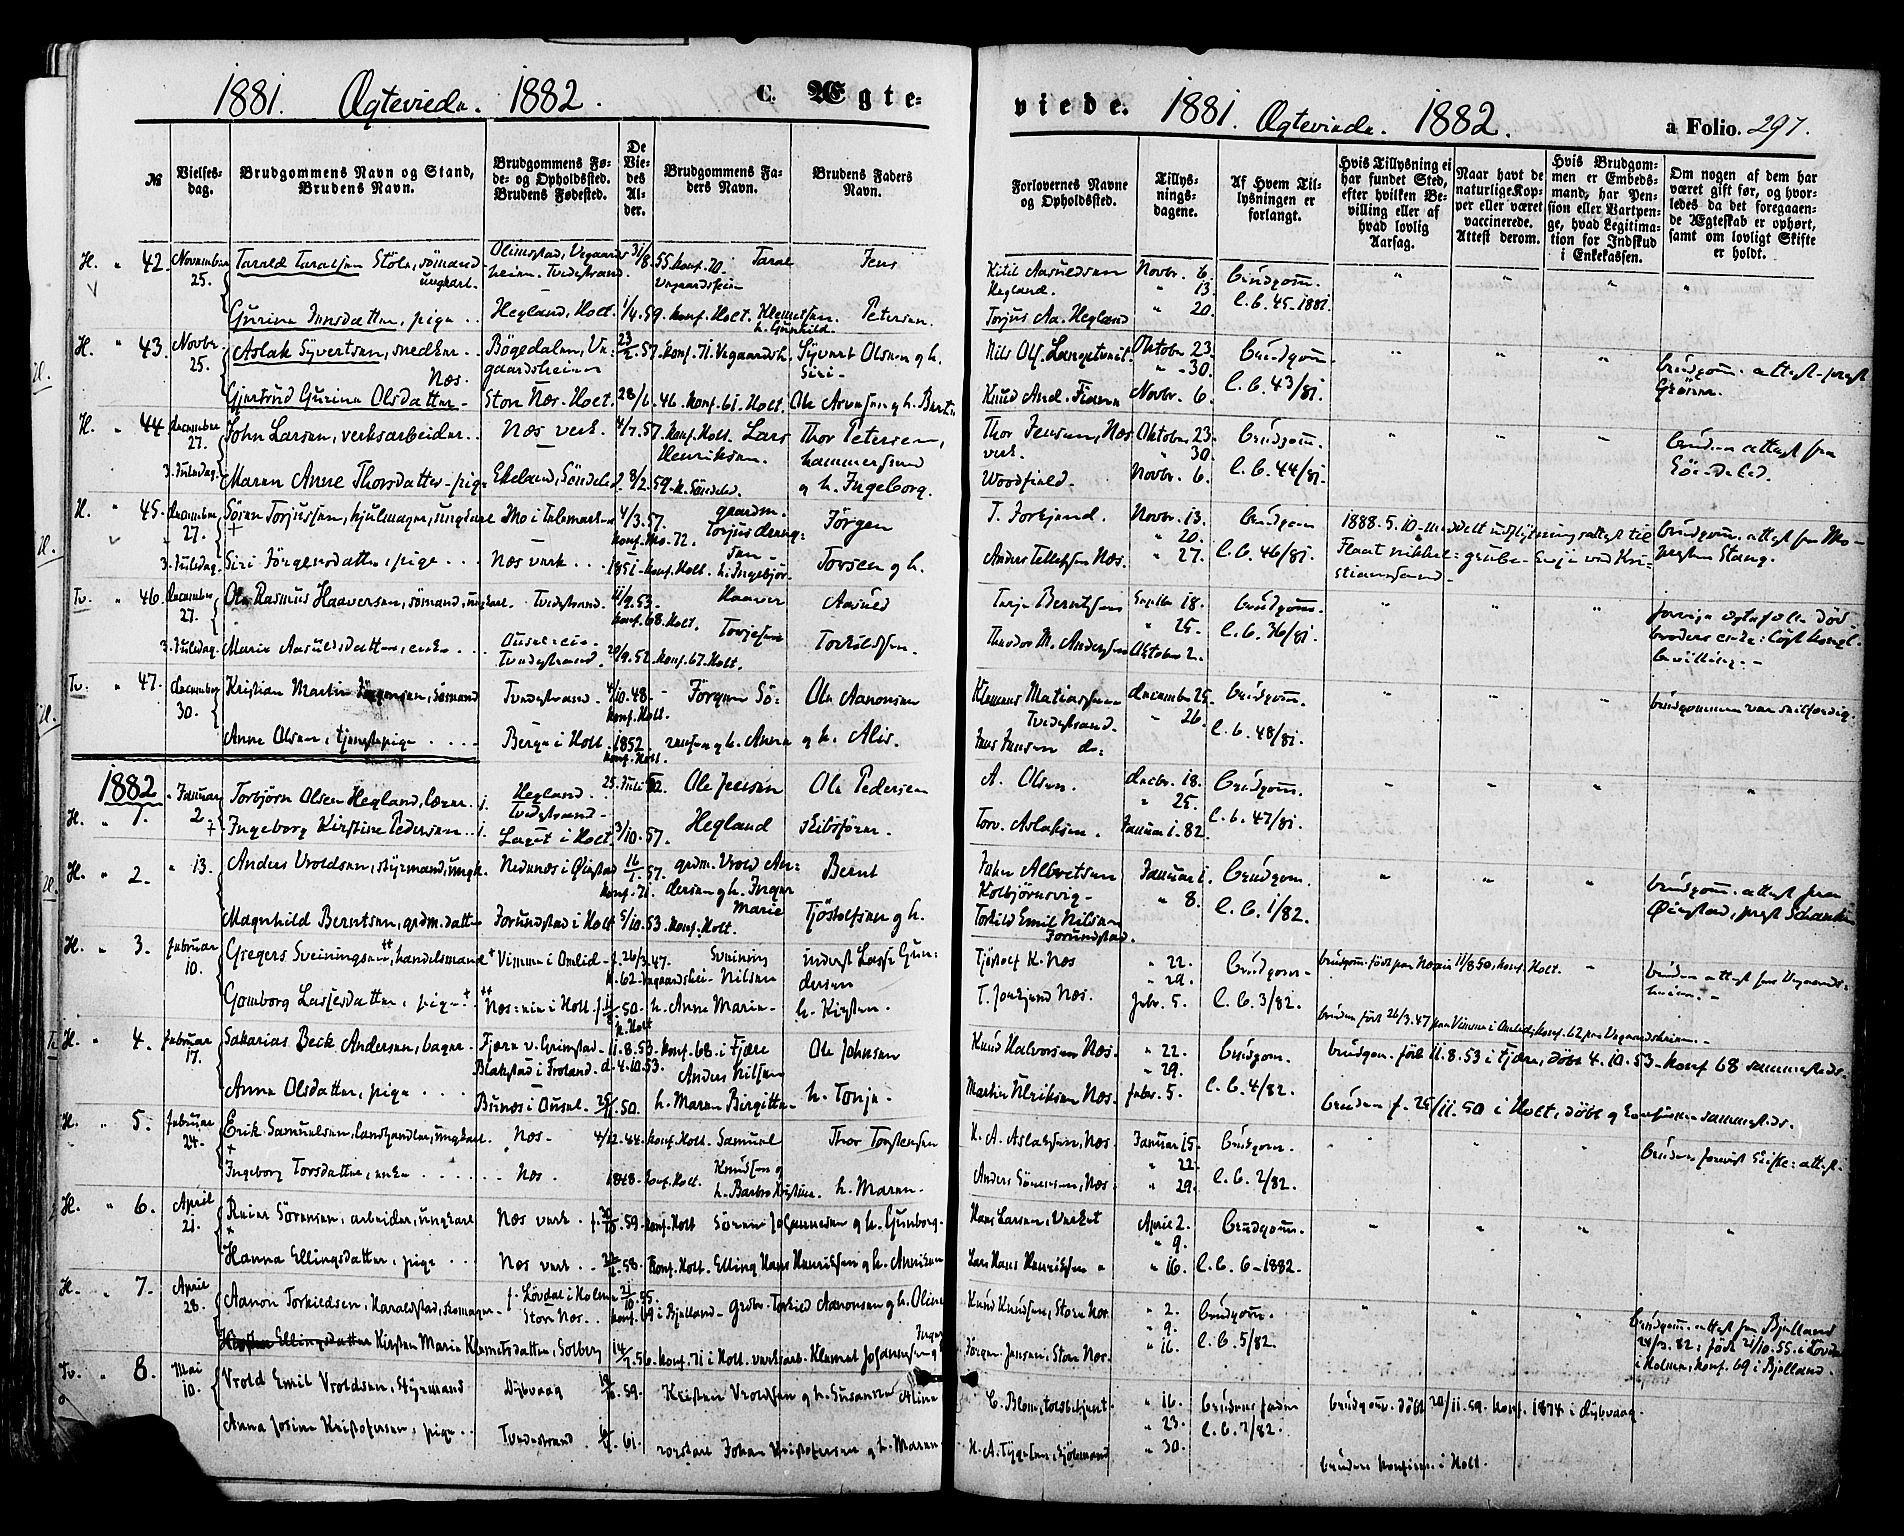 1881. Ægteviede. 1882. C. Ægte-
№
Vielses-
dag.
Brudgommens Navn og Stand,
Brudens Navn.
Brudgommens Fø-
de- og Opholdssted.
Brudens Fødested.
De
Vie-
des
Al-
der.
Brudgommens Fa-
ders Navn.
Brudens Faders
Navn.
H. " 42. November 25. Tarald Taralsen Stole, sømand ungkarl. Vegaardsheien. Tvedestrand. 31/8 55. konf. 70. Vegaardsheien Taral Jens
Gurine Jensdatter, pige .. Hegland, Holt. 1/4. 59. konf. Holt. Klemetsen. h. Gunhild. Petersen.
H. " 43. Novbr. 25. Aslak Syvertsen, snedker .. Næs. Bøgedalen, Ve-gaardsheien 57. konf. 71. Vegaardsh. Syvert Olsen q h. Siri-
Gjertrud Gurine Olsdatter - Store Næs. Holt. 28/6. 46. konf. 61. Holt. Ole
H. " 44. december 27. John Larsen, verksarbeider .. Næs verk. 4/7. 57. konf. Holt. Lars Henriksen. Thor Petersen, hammersmed
3. Juledag. Maren Anne Thorsdatter - pige Ekeland, Søndeled. 8/2. 59. k. Søndeled. q h. Ingeborg.
H. " 45. december 27. Søren Torjussen, hjulmager, ungkarl Mo i Telemarken 4/3. 57. konf. Mo. 72. gaardm. Torjus Jørgen
3. Juledag. Siri Jørgensdatter, pige ... Næs verk ... 1851. konf. Holt. h. Ingebjør- Torsen q h.
Tv. " 46. december 27. Ole Rasmus Haaversen, sømand, ungkarl. Tvedestrand. 11/9. 53. konf. 68. Holt. Haaver Torjesen Aasuld
3. Juledag. Marie Aasuldsdatter, enke .. Tvedestrand. 29/9. 52. konf. 67. Holt. Torkildsen.
Tv. " 47. december 30. Kristian Martin Jørgensen, sømand Tvedestrand. 4/10. 48. konf. Holt. Jørgen Sø- Ole Aanonsen
Anne Olsen, tjenestepige .... Berge i Holt. 1852. konf. Holt. rensen q h. Anne q h. Alis.
1882
H. " 1. Januar 2. Torbjørn Olsen Hegland, lærer. Hegland. Tvedestrand. 25. Juli 52. Ole Jensen Ole Pedersen
Ingeborg Kirstine Pedersen .. Laget i Holt. 3/10. 57. Hegland skibsfører.
H. " 2. " 13. Anders Vroldsen, styrmand, ungk. Nedenæs i Øiestad 16/1. 57. konf. 71. grdm. Vrold An-dersen q h. Inger Marie Bernt
Magnhild Berntsen, grdm. datter Jorundstad i Holt 5/10. 53. konf. Holt. Tjøstolfsen q h.
H. " 3. Februar 10. Gregers Sveiningsen, handelsmand Vimme i Omlid f. 26/3. 47. k. 62. Vegaardshei Sveining Nilsen inderst Lasse Gun-dersen
Gomborg Lassesdatter, pige. Næs: eie i Holt 50. k. Holt h. Anne Marie. h. Kirsten.
H. " 4. Februar 17. Sakarias Beck Andersen, bager. Fjære v. Grimstad. Blakstad i Froland. 11. 8. 53. d. 4.10.53. konf. 68. i Fjære Anders Nilsen Ole Johnsen
Anne Olsdatter, pige .... Bunæs i Ousel. 25/11. 50. h. Maren Birgitte. h. Tonje.
H. " 5. Februar 24. Erik Samuelsen, landhandler, ungkarl. Næs. 4/12. 44. konf. Holt. Samuel Thor Torstensen
Ingeborg Torsdatter, enke ..... Næs. 1848. konf. Holt. Knudsen q h. Barbro Kristine. h. Maren.
H. " 6. April 21. Reier Sørensen, arbeider, ungkarl Næs verk . f. 59. konf. Holt Søren q h. Gunborg.
Hanna Ellingsdatter, pige ... Næs verk .. 58. konf. Holt. Elling Hans Henriksen q h. Anniken
H. " 7. April 28. Aanon Torkildsen, Haraldstad, skomager f. Løvdal i Holme Store Næs .. 21/10. 55. konf. 69 i Bjelland - grdbr. Torkild Aanonsen q h. Oline
Kirsten Ellingsdatter Kirsten Marie Klemetsdatter, Solberg 14/7. 56. konf. 71 i Holt. verksarb. Klemet Johannesen q h. Inger
Tv. " 8. Mai 10. Vrold Emil Vroldsen, styrmand Dybvaag 59. Kristen Vroldsen q h. Susanne Aline
Anna Josine Kristofersen, pige .. Tvedestrand 61. Johan Kristofersen q h. Maren
viede. 1881. Ægteviede. 1882. a Folio. 297.
Forlovernes Navne
og Opholdssted.
Tillys-
nings-
dagene.
Af Hvem Til-
lysningen er
forlangt.
Hvis Tillysning ei
har fundet Sted,
efter hvilken Be-
villing eller af
hvad lovlig
Aarsag.
Naar havt de
naturlige Kop-
per eller været
vaccinerede.
Attest derom.
Hvis Brudgom-
men er Embeds-
mand, har Pen-
sion eller Vartpen-
ge, hvad Legitima-
tion for Indskud
i Enkekassen.
Om nogen af dem har
været gift før, og hvor-
ledes da det foregaaen-
de Ægteskab er ophørt,
samt om lovligt Skifte
er holdt.
Kitil Aasuldsen Hegland. Novbr. 6. " 13. Brudgom. " " " "
Torjus Aa. Hegland " 20. l. b. 45. 1881.
Nils Olf. Oktobr. 23. " 30. Brudgom. " " " brudgom. attest - prest Grøner.
Knud And. Fiane Novbr. 6. l. b. 43/81.
Thor Jensen, Næs verk. Oktober 23. 30. Brudgom. " " " bruden attest fra Søndeled.
Woodfield. Novbr. 6. l. b. 44/81.
T. Forkjend. Novbr. 13. " 20. Brudgom 1888. 5. 10. meddelt udflytningsattest til brudgom. attest fra Mo. prest Stang.
Anders Tellefsen Næs. " 27. l. b. 46/81. Flaat nikkel-grube - Evje ved Kri-stianssand.
Terje Berntsen Septbr 18. " 25. Brudgom. " " "
Theodor M. Andersen Oktober 2. l. b. 36/81. broders enke: løst kongl. bevilling. -
Klemens Matiassen Tvedestrand. december 25. " 26. Brudgom. " " " brudgommen var
Jens Jensen do: l. b. 48/81.
A. Olsen. decbr. 18. " 25. Brudgom. " " " "
Torv. Aslaksen. Januar 1. 82. l. b. 47/81.
Johan Albretsen Kolbjørnsvig - Januar 1. " 8. Brudgom. " " " brudgom. attest fra Øiestad, prest
Torkild Emil Nilsen Jorundstad. l. b. 1/82.
Tjøstolf K. Næs " 22. " 29. Brudgom - brudgom. født paa Næseie 11/8 50, konf. Holt. bruden attest fra Vegaards-heien. -
T. Forkjend Næs. Febr. 5. l. b. 3/82. bruden født 26/3. 47 paa Vimme i Omlid, konf. 62 paa Vegaardsheien. -
Knud Halvorsen Næs. " 22. " 29. Brudgom. brudgom. født 11. 8. 53 i Fjære, døbt 4. 10. 53 - konf 68 sammesteds.
Martin Ulriksen Næs. Febr. 5. l. b. 4/82. bruden f. 25/11. 50 i Holt, døbt q konfirm. sammesteds.
K. A. Aslaksen, Næs. Januar 15. " 22. Brudgom. " " " bruden forevist skifte: attest.
Anders Sørensen, Næs. " 29. l. b. 2/82.
Hans Larsen, Verket April 2. " 9. Brudgom. " " " "
Lars Hans Henriksen " " 16. l. b. 6 - 1882.
Knud Knudsen, Store Næs " 2. " 9. Brudgom. " " " brudgom. attest fra Bjelland 24/3. 82; født 21/10. 55. i Løvdal i Holme, konf. 69 i Bjelland.
Jørgen Jensen, Store Næs. " 16. l. b. 5/82.
C. Blom, toldbetjent " 16. " 23. Brudens fader brudgom. døbt 20/11. 59. konf. 1874 i Dybvaag
H. A. Tygesen, " 30. l. b. 7/82. bruden konfirm. i Holt.